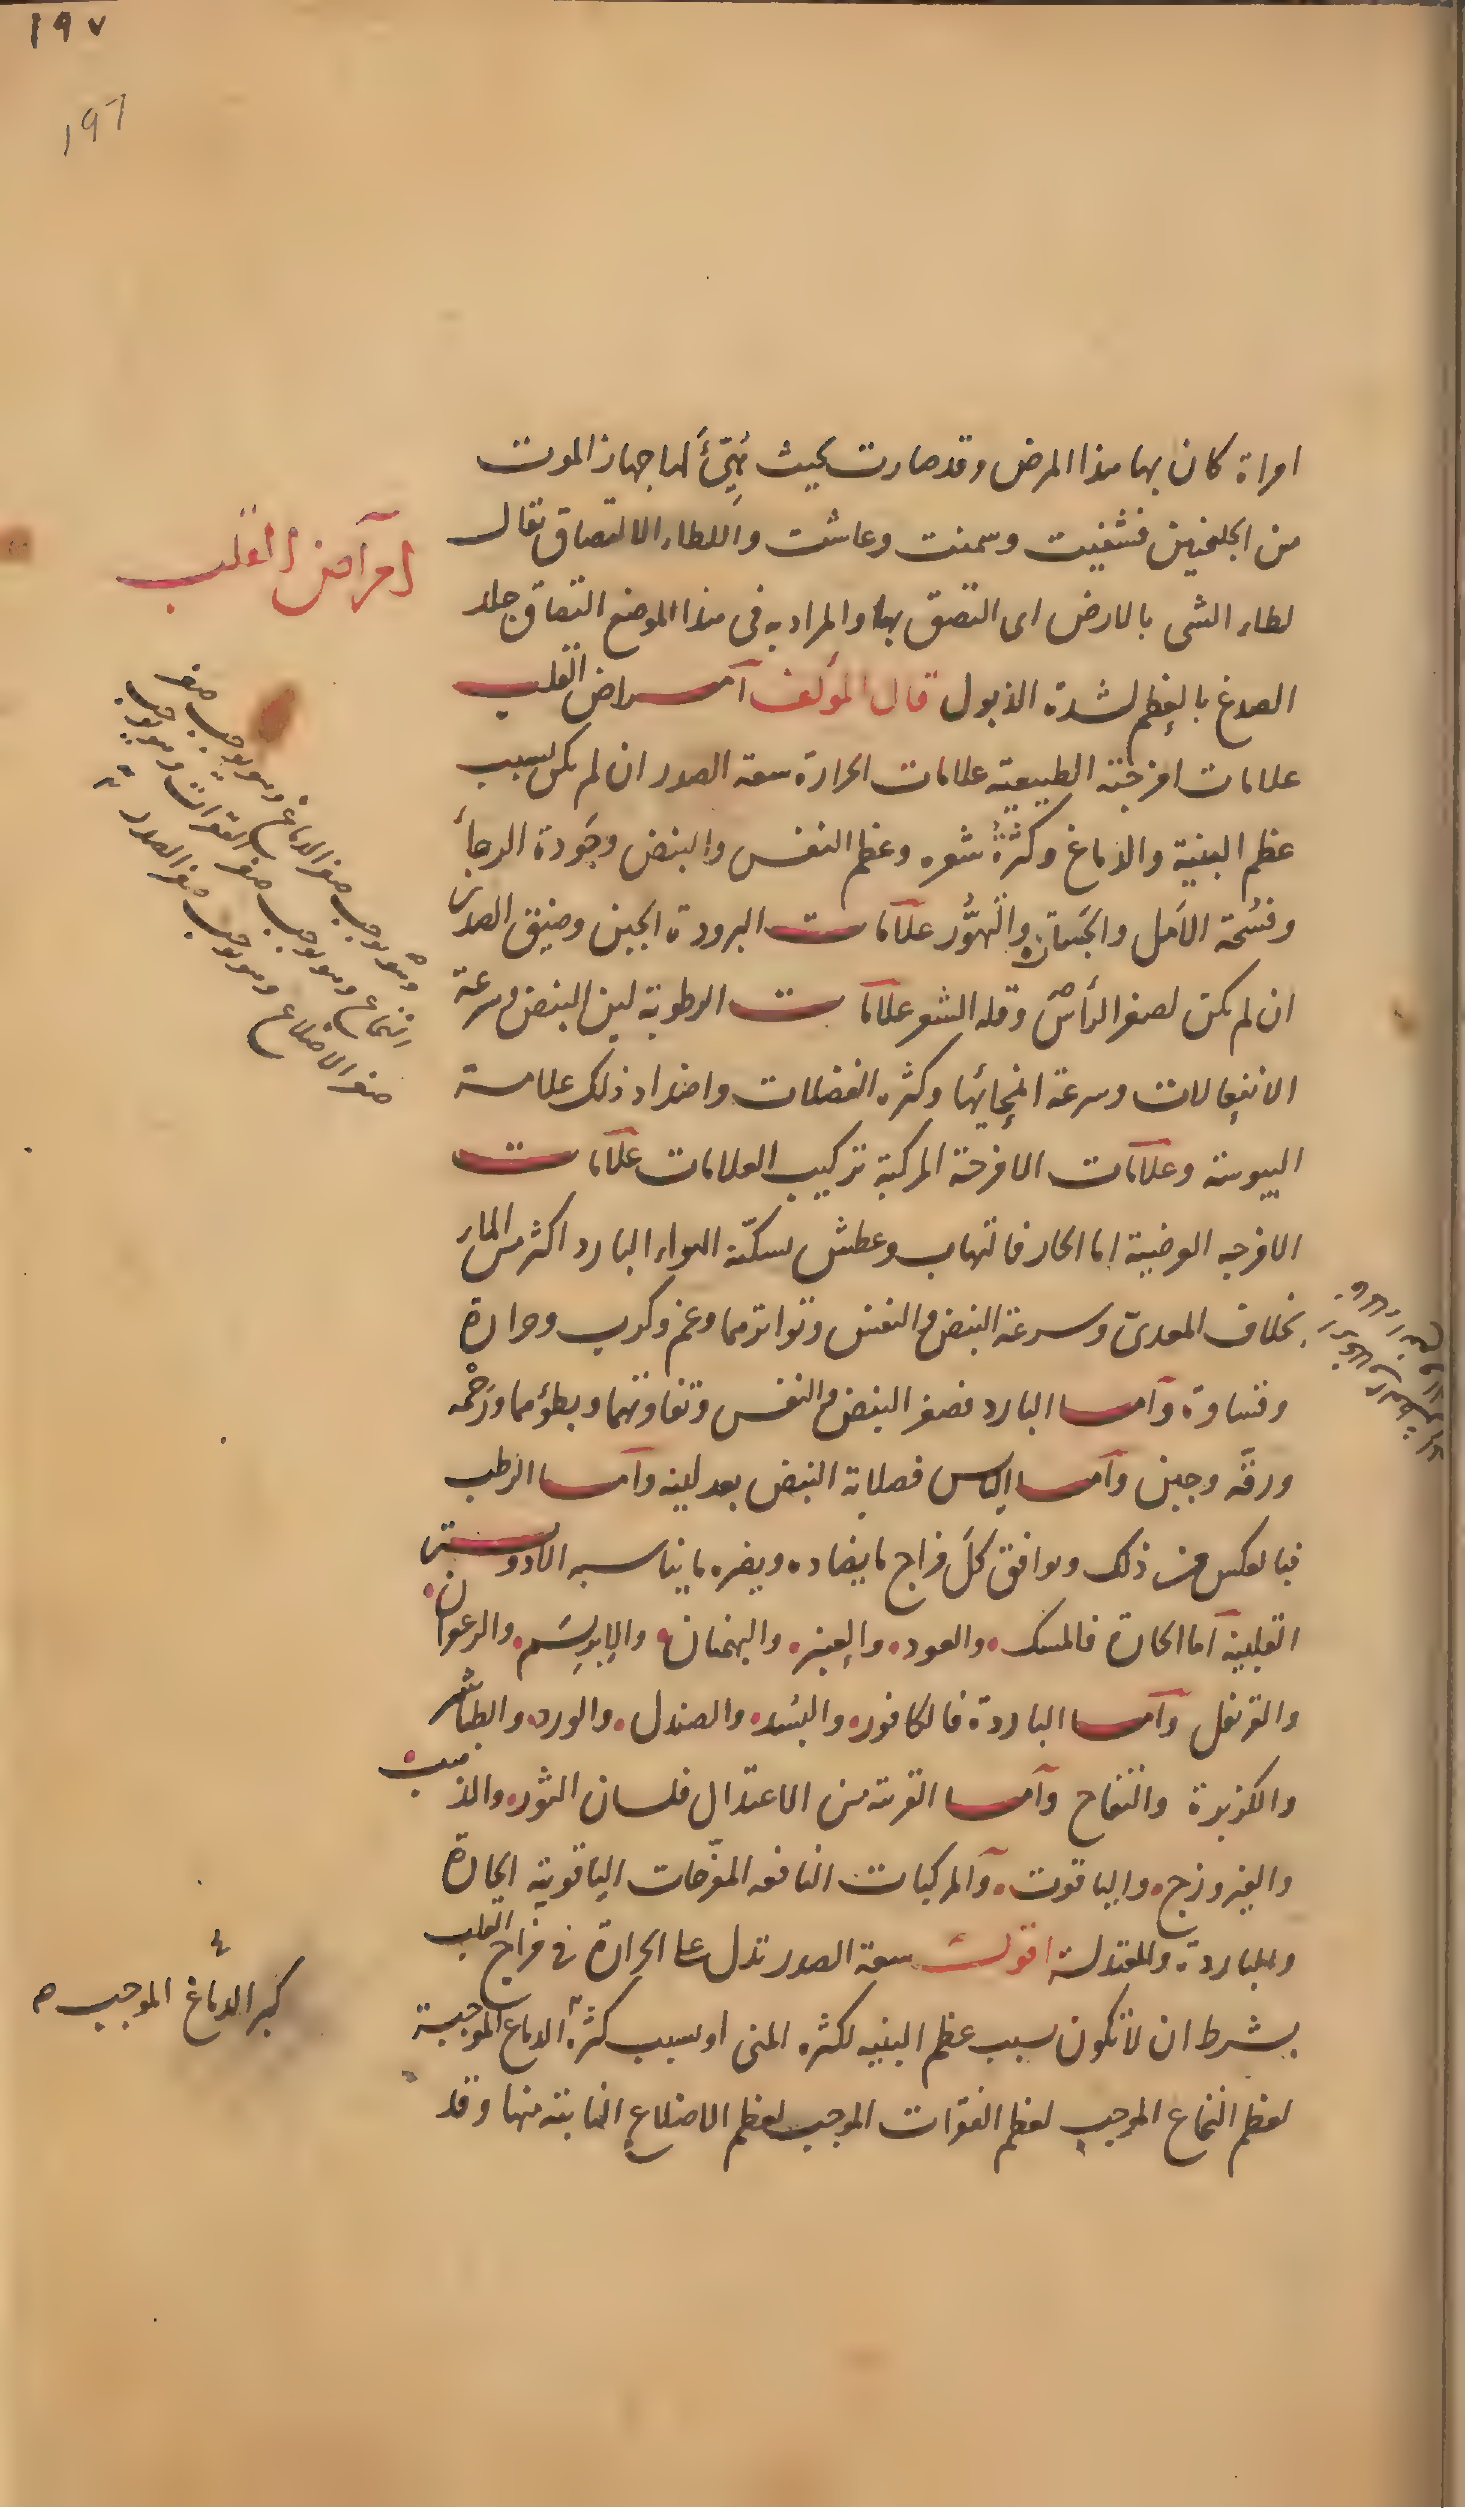 ١٩٧
١٩٦
امراة كان بها هذا المرض وقد صارت بحيث يُهَيَّأ لها جهاز الموت
من الجلنجبين فشفيت وسمنت وعاشت واللطاء الالتصاق يقال
لطاء الشى بالارض اى التصق بها والمراد به فى هذا الموضع التصاق جلد
الصدغ بالعظم لشدة الذبول قال المؤلف امراض القلب
امراض القلب
علامات امزجته الطبيعية علامات الحرارة سعة الصدر ان لم يكن لسبب
عظم البنية والدماغ وكثرة شعره وعظم النفس والنبض وجَودة الرجاء
وفسُحة الأمل والجسارة والتهوُّر علامات البرودة الجبن وضيق الصدر
ان لم يكن لصغر الرأس وقلة الشعر علامات الرطوبة لين النبض وسرعة
وهو يوجب صغر الدماغ وهو يوجب صغر
النخاع وهو يوجب صغر الفقرات وهو يوجب
صغر الاضلاع وهو يوجب صغر الصدر
الانفعالات وسرعة انمحائها وكثره الفضلات واضداد ذلك علامة
اليبوسة وعلامات الامزجة المركبة تركيب العلامات علامات
الامزجه العرضية اما الحار فالتهاب وعطش يسكنّه الهواء البارد اكثر من الماء
بخلاف المعدىّ وسرعة النبض والنفس وتواترهما وغم وكرب وحرارة
وقساوة وأما البارد فصغر النبض والنفس وتفاوتهما وبطؤهما ورَحْمه
ورقّه وجبن وأما اليابس فصلابة النبض بعد لينه وأما الرطب
فبالعكس من ذلك ويوافق كلَ مزاج ما يضاده ويضره ما يناسبه الادوية
القلبية اما الحارة فالمسك والعود والعنبر والبهمنان والابريسَم والزعفران
والقرنفل وأما الباردة فالكافور والبسُد والصندل والورد والطباشير
والكزبرة والتفاح وأما القريبة من الاعتدال فلسان الثور والذهب
والفيروزج والياقوت والمركبات النافعه المفرّحات الياقوتية الحارة
والباردة والمعتدلة اقول سعة الصدر تدل على الحرارة فى مزاج القلب
بشرط ان لا تكون بسبب عظم البنيه لكثره المنى او بسبب كثرة الدماغ الموجبة
كبر الدماغ الموجب
لعظم النخاع الموجب لعظم الفقرات الموجب لعظم الاضلاع النابتة منها وقد